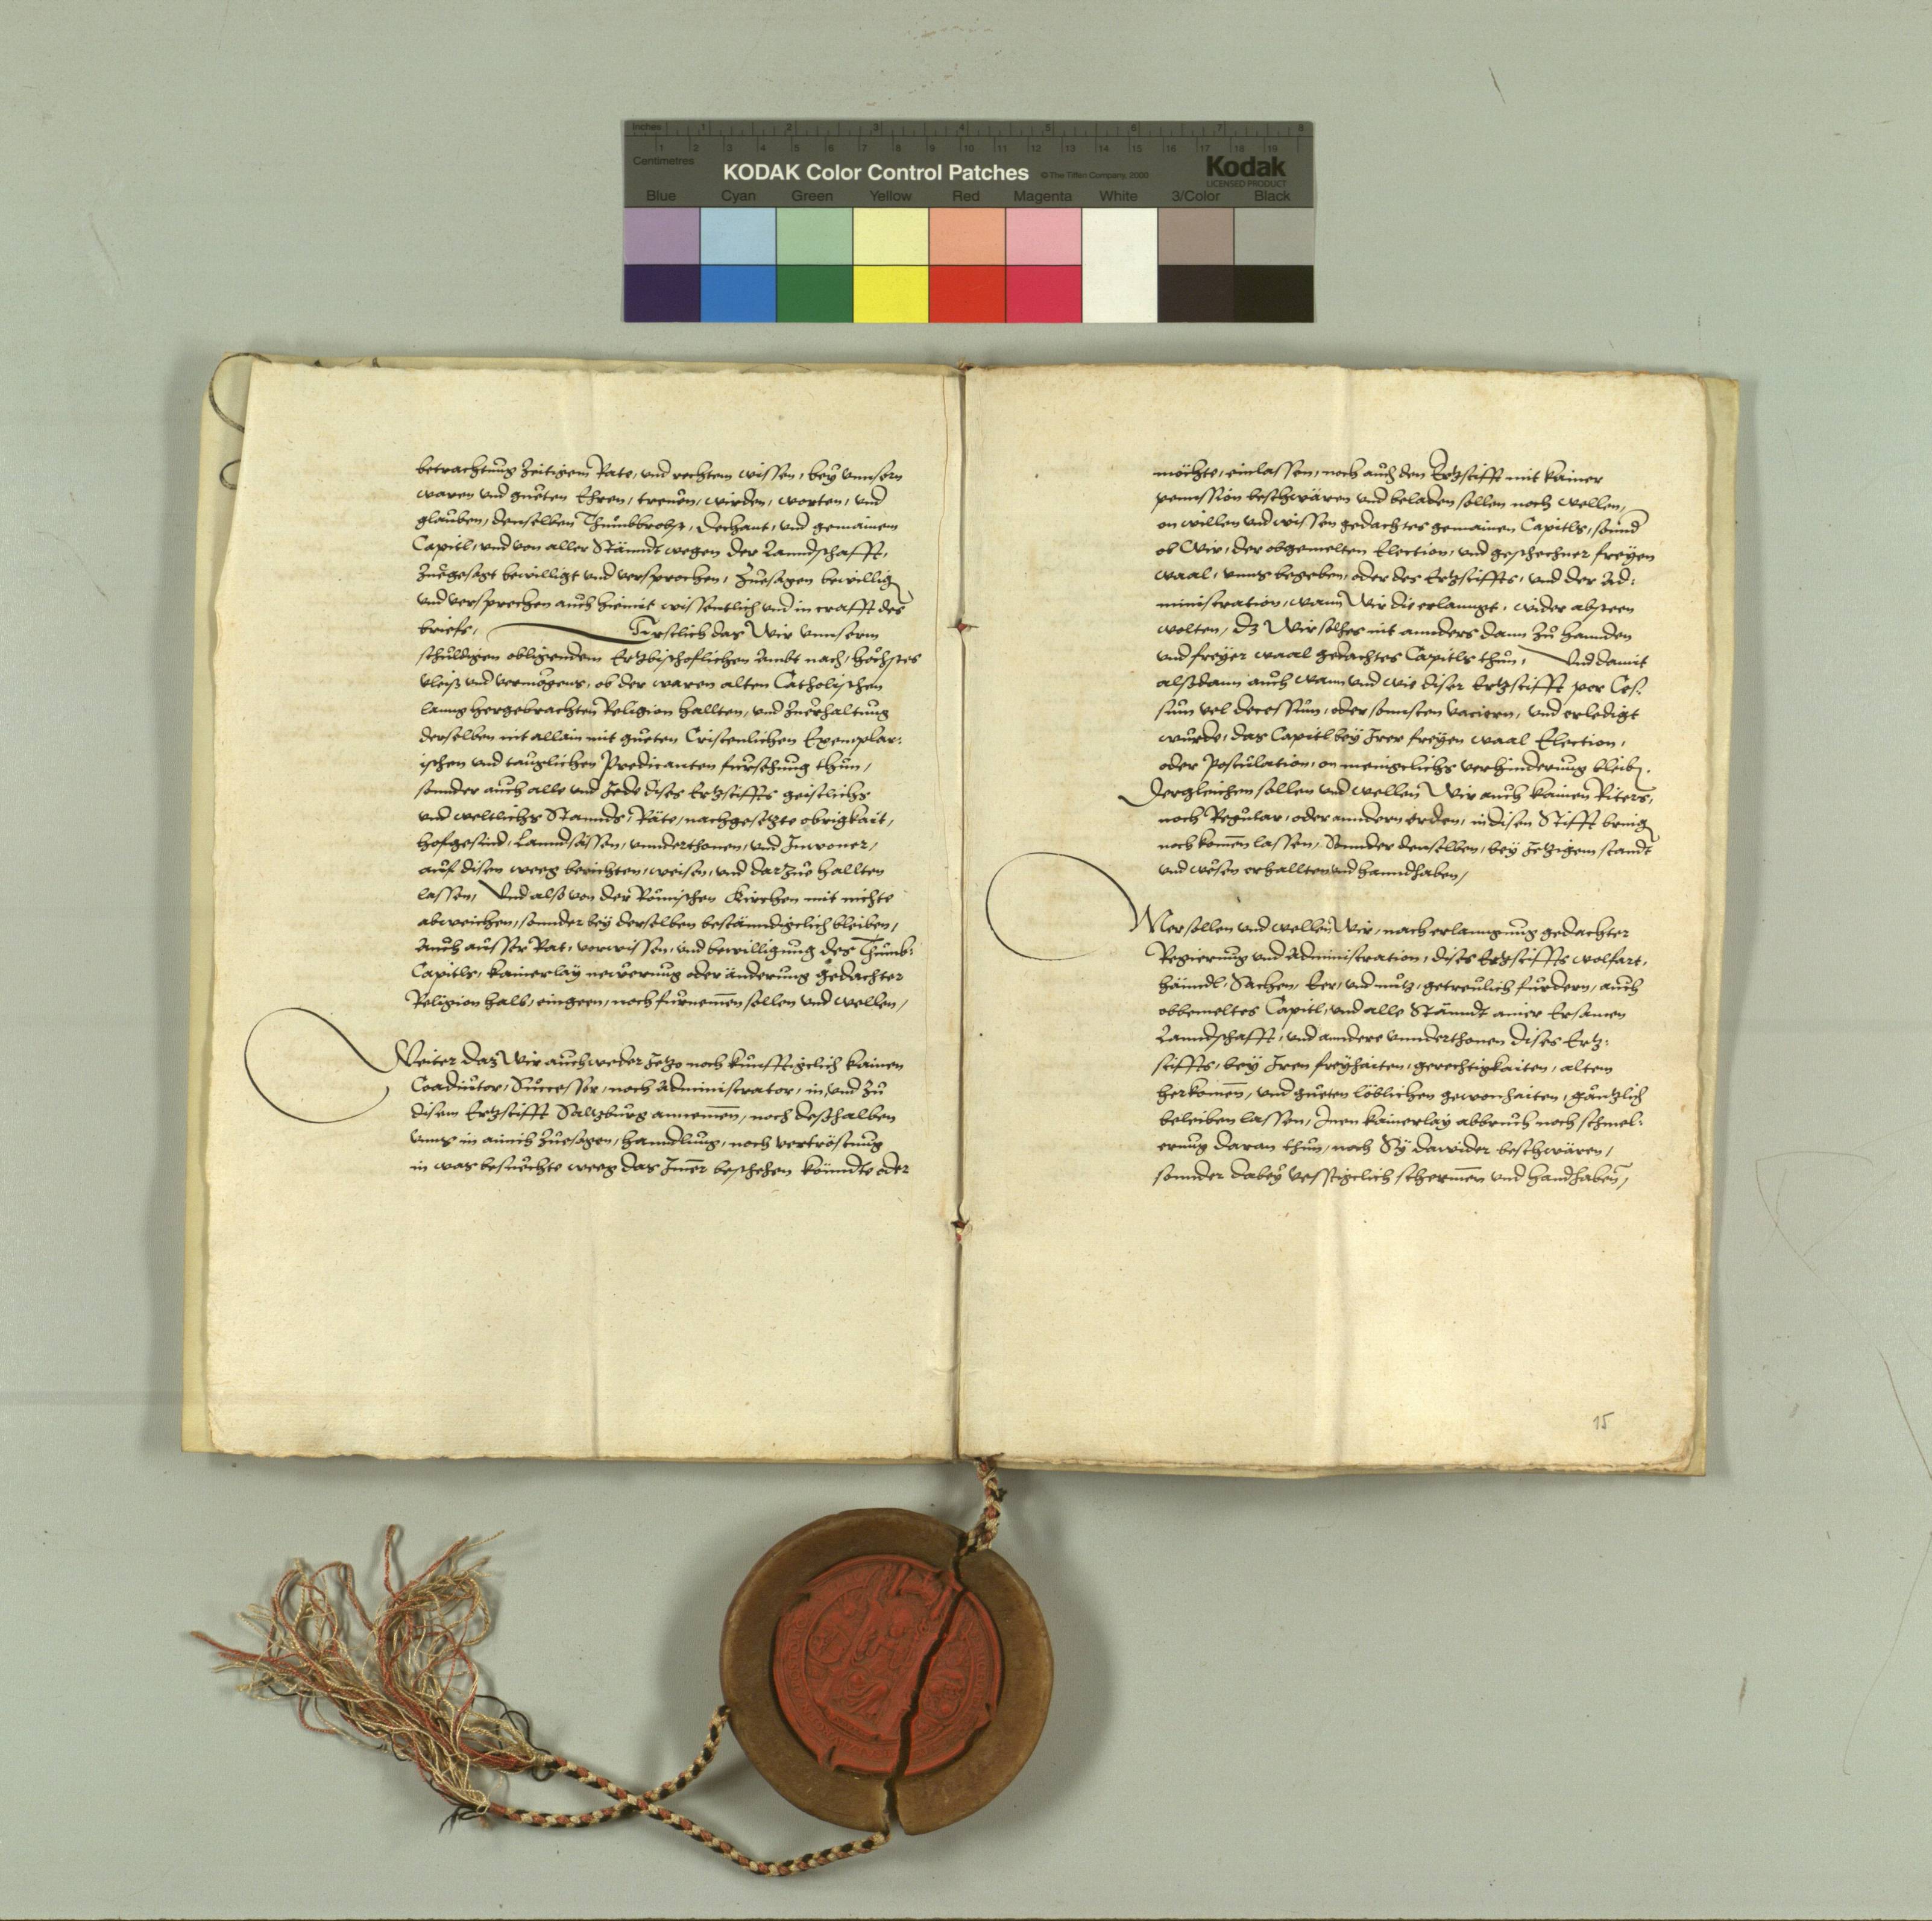 Inches 1 2 3 4 5 6 7 8
1 2 3 4 5 6 7 8 9 10 11 12 13 14 15 16 17 18 19
Centimetres
KODAK Color Control Patches © The Tiffen Company, 2000 Kodak
LICENSED PRODUCT
Blue Cyan Green Yellow Red Magenta White 3/Color Black
betrachtung zeitigem Rate, und rechtem wissen, bey unnsern
waren und gueten Ehren, treuen, wirden, worten, und
glauben, denselben Thumbbrobst, Dechant, und gemainem
Capitl, und von aller Stänndt wegen der Lanndschafft,
zuegesagt bewilligt und versprochen, Zuesagen bewillig
und versprechen auch hiemit wissentlich und in crafft des
briefs, Erstlich das Wir unnserm
schuldigen obligendem Ertzbischoflichen Ambt nach, höchstes
vleiß und vermögens, ob der waren alten Catholischen
lanng hergebrachten Religion hallten, und zuerhaltung
derselben nit allain mit gueten Cristenlichen Exemplar:
ischen und tauglichen Predicanten fursehung thun,
sonnder auch alle und Jede dises Ertzstiffts geistlichs
und weltlichs Stannds, Räte, nachgesetzte obrigkait,
hofgesind, Lanndsässen, unnderthonen, und Inwoner,
auf disen weeg berichten, weisen, und dartzue hallten
lassen, Und also von der Römischen Kirchen mit nichte
abweichen, sonnder bey derselben bestänndigclich bleiben,
Auch ausser Rat, vorwissen, und bewilligung des Thumb:
Capitls, kainerlay newerung oder änderung gedachter
Religion halb, eingeen, noch furnemen sollen und wellen,
Weiter daz Wir auch weder Jetzo noch kunfftigclich kainen
Coadiutor, Successor, noch Administrator, in und zu
disem Ertzstifft Saltzburg annemen, noch deßhalben
unns in ainich Zuesagen, hanndlung, noch vertröstung
in was besuechte weeg das Imer beschehen könndte oder
möchte, einlassen, noch auch den Ertzstifft mit kainer
pennssion beschwären und beladen sollen noch wellen,
on willen und wissen gedachtes gemainen Capitls, sonnd
ob Wir, der obgemelten Election, und geschechner freyen
waal, unns begeben, oder des Ertzstiffts, und der Ad:
ministration, wann Wir die erlanngt, wider absteen
wolten, dz Wir solhes nit annders dann zu hannden
und freyer waal gedachtes Capitls thun, Und damit
alßdann auch wann und wie diser Ertzstifft per Ces:
sum vel decessum, oder sonnsten vaciern, und erledigt
wurde, das Capitl bey Irer freyen waal Election,
oder Postulation, on menigclichs verhinderung bleib.
Dergleichen sollen und wellen Wir auch kainen Riters,
noch Regular, oder anndern orden, in disen Stifft bring
noch komen lassen, Sonnder denselben, bey Jetzigem standt
und wesen erhallten und hanndhaben,
Mer sollen und wellen Wir, nach erlanngung gedachter
Regierung und Administration, dises Ertzstiffts wolfart,
hänndl, Sachen, Eer, und nutz, getreulich furdern, auch
obbemeltes Capitl, und alle Stänndt ainer Ersamen
Lanndschafft, und anndere unnderthonen dises Ertz:
stiffts, bey Iren freyhaiten, gerechtigkaiten, altem
herkomen, und gueten löblichen gewonhaiten, gäntzlich
beleiben lassen, Inen kainerlay abbruch noch schmel:
erung daran thun, noch Sy dawider beschwären,
sonnder dabey vesstigclich schermen und handhaben,
15